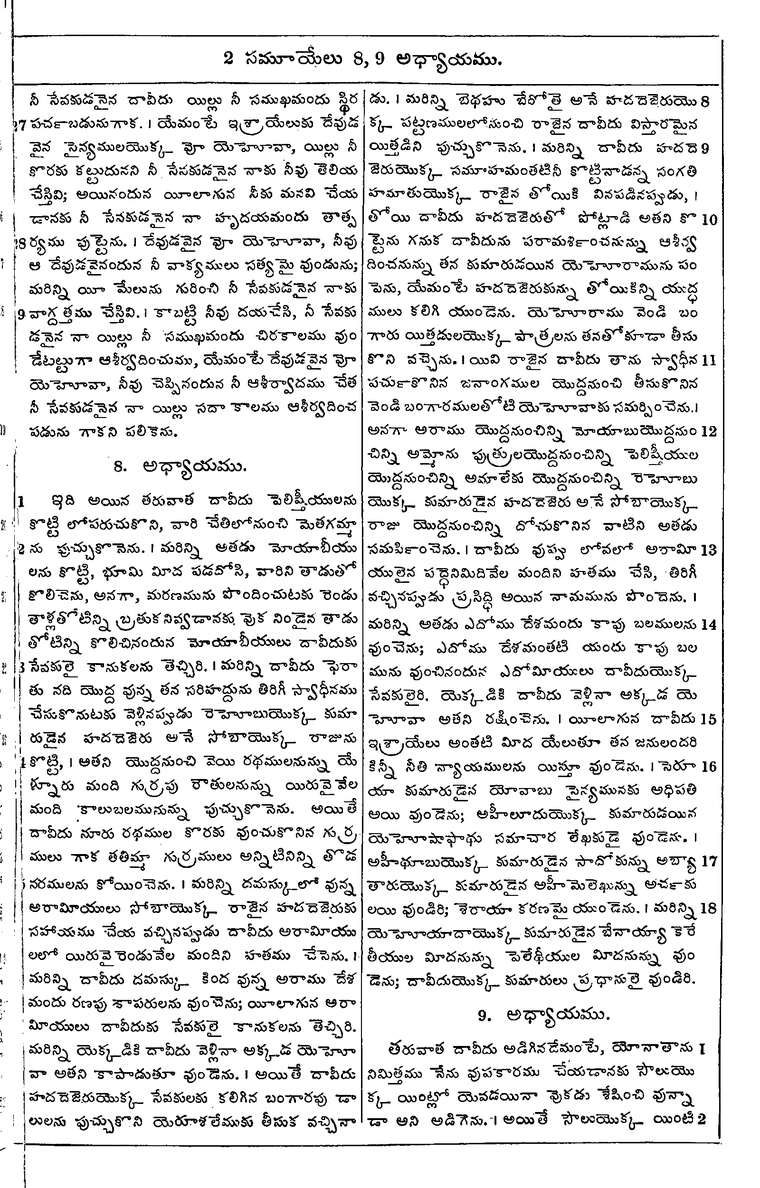 2 సమూయేలు 8, 9 అధ్యాయము.
నీ సేవకుడనైన దావీదు యిల్లు నీ సముఖమందు స్థిర
27 పర్చబడునుగాక. । యేమంటే ఇశ్రాయేలుకు దేవుడ
వైన సైన్యములయొక్క వోు యెహోవా, యిల్లు నీ
కొరకు కట్టుదునని నీ సేవకుడనైన నాకు నీవు తెలియ
చేస్తివి; అయినందున యీలాగున నీకు మనవి చేయ
డానకు నీ సేనకుడనైన నా హృదయమందు తాత్ప
28 ర్యము పుట్టెను. । దేవుడవైన వోు యెహోవా, నీవు
ఆ దేవుడవైనందున నీ వాక్యములు సత్యమై వుండును;
మరిన్ని యీ మేలును గురించి నీ సేవకుడనైన నాకు
29 వాగ్దత్తము చేస్తివి. । కాబట్టి నీవు దయచేసి, నీ సేవకు
డనైన నా యిల్లు నీ సముఖమందు చిరకాలము వుం
డేటట్టుగా ఆశీర్వదించుము, యేమంటే దేవుడవైన వోు
యెహోవా, నీవు చెప్పినందున నీ ఆశీర్వాదము చేత
నీ సేవకుడనైన నా యిల్లు సదా కాలము ఆశీర్వదించ
పడును గాకని పలికెను.
8. అధ్యాయము.
1 ఇది అయిన తరువాత దావీదు పెలిష్తీయులను
కొట్టి లోపరుచుకొని, వారి చేతిలోనుంచి మెతగమ్మా
2 ను పుచ్చుకొనెను. । మరిన్ని అతడు మోయాబీయు
లను కొట్టి, భూమి మీద పడదోసి, వారిని తాడుతో
కొలిచెను, అనగా, మరణమును పొందించుటకు రెండు
తాళ్లతోటిన్ని బ్రతుకనివ్వడానకు వుక నిండైన తాడు
తోటిన్ని కొలిచినందున మోయాబీయులు దావీదుకు
3 సేవకులై కానుకలను తెచ్చిరి. । మరిన్ని దావీదు ఫెరా
తు నది యొద్ద వున్న తన సరిహద్దును తిరిగీ స్వాధీనము
చేసుకొనుటకు వెళ్లినప్పుడు రెహోబుయొక్క కుమా
రుడైన హదదెజెరు అనే సోబాయొక్క రాజును
4 కొట్టి, । అతని యొద్దనుంచి వెయి రథములనున్ను యే
ళ్నూరు మంది గుర్రపు రౌతులనున్ను యిరువైవేల
మంది కాలుబలమునున్ను పుచ్చుకొనెను. అయితే
దావీదు నూరు రథముల కొరకు వుంచుకొనిన గుర్ర
ములు గాక తతిమ్మా గుర్రములు అన్నిటినిన్ని తొడ
5 నరములను కోయించెను. । మరిన్ని దమస్కులో వున్న
అరామీయులు సోబాయొక్క రాజైన హదదెజెరుకు
సహాయము చేయ వచ్చినప్పుడు దావీదు అరామీయు
లలో యిరువై రెండువేల మందిని హతము చేసెను. ।
మరిన్ని దావీదు దమస్కు కింద వున్న అరాము దేశ
మందు రణపు కాపరులను వుంచెను; యీలాగున అరా
మీయులు దావీదుకు సేవకులై కానుకలను తెచ్చిరి.
మరిన్ని యెక్కడికి దావీదు వెళ్లినా అక్కడ యెహో
వా అతని కాపాడుతూ వుండెను. । అయితే దావీదు
హదదెజెరుయొక్క సేవకులకు కలిగిన బంగారపు డా
లులను పుచ్చుకొని యెరూశలేముకు తీసుక వచ్చినా
డు. । మరిన్ని బెథహు బేరోతై అనే హదదెజెరుయొ 8
క్క పట్టణములలోనుంచి రాజైన దావీదు విస్తారమైన
యిత్తడిని పుచ్చుకొనెను. । మరిన్ని దావీదు హదదె 9
జెరుయొక్క సమూహమంతటినీ కొట్టినాడన్న సంగతి
హమాతుయొక్క రాజైన తోయికి వినపడినప్పుడు, ।
తోయి దావీదు హదదెజెరుతో పోట్లాడి అతని కొ 10
ట్టెను గనుక దావీదును పరామర్శించనున్ను ఆశీర్వ
దించనున్ను తన కుమారుడయిన యెహోరామును పం
పెను, యేమంటే హదదెజెరుకున్ను తోయికిన్ని యుద్ధ
ములు కలిగి యుండెను. యెహోరాము వెండి బం
గారు యిత్తడులయొక్క పాత్రలను తనతోకూడా తీసు
కొని వచ్చెను. । యివి రాజైన దావీదు తాను స్వాధీన 11
పర్చుకొనిన జనాంగముల యొద్దనుంచి తీసుకొనిన
వెండి బంగారములతోటి యెహోవాకు సమర్పించెను.।
అనగా అరాము యొద్దనుంచిన్ని మోయాబుయొద్దనుం 12
చిన్ని అమ్మోను పుత్రులయొద్దనుంచిన్ని పెలిష్తీయుల
యొద్దనుంచిన్ని అమాలేకు యొద్దనుంచిన్ని రెహోబు
యొక్క కుమారుడైన హదదెజెరు అనే సోబాయొక్క
రాజు యొద్దనుంచిన్ని దోచుకొనిన వాటిని అతడు
సమర్పించెను. । దావీదు వుప్పు లోవలో అరామీ 13
యులైన పద్ధెనిమిదివేల మందిని హతము చేసి, తిరిగీ
వచ్చినప్పుడు ప్రసిద్ధి అయిన నామమును పొందెను. ।
మరిన్ని అతడు ఎదోము దేశమందు కాపు బలములను 14
వుంచెను; ఎదోము దేశమంతటి యందు కాపు బల
మును వుంచినందున ఎదోమీయులు దావీదుయొక్క
సేవకులైరి. యెక్కడికి దావీదు వెళ్లినా అక్కడ యె
హోవా అతని రక్షించెను. । యీలాగున దావీదు 15
ఇశ్రాయేలు అంతటి మీద యేలుతూ తన జనులందరి
కిన్నీ నీతి న్యాయములను యిస్తూ వుండెను. । సెరూ 16
యా కుమారుడైన యోవాబు సైన్యమునకు అధిపతి
అయి వుండెను; అహీలూదుయొక్క కుమారుడయిన
యెహోషాఫాథు సమాచార లేఖకుడై వుండెను. ।
అహీథూబుయొక్క కుమారుడైన సాదోకున్ను అబ్యా 17
తారుయొక్క కుమారుడైన అహీమెలెఖున్ను అర్చకు
లయి వుండిరి; శెరాయా కరణమై యుండెను. । మరిన్ని 18
యెహోయాదాయొక్క కుమారుడైన బేనాయ్యా కెరే
తీయుల మీదనున్ను పెలేథీయుల మీదనున్ను వుం
డెను; దావీదుయొక్క కుమారులు ప్రధానులై వుండిరి.
9. అధ్యాయము.
తరువాత దావీదు అడిగినదేమంటే, యోనాతాను 1
నిమిత్తము నేను వుపకారము చేయడానకు సౌలుయొ
క్క యింట్లో యెవడయినా వుకడు శేషించి వున్నా
డా అని అడిగెను. । అయితే సౌలుయొక్క యింటి 2